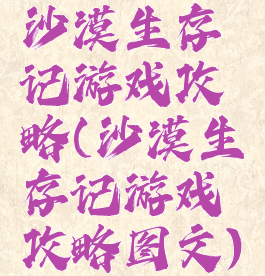 沙漠生存
记游戏攻
略(沙漠生
存记游戏
攻略图文)